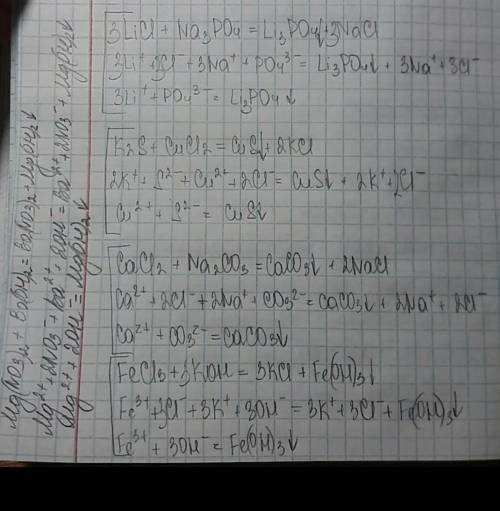 3LiCl + Na₃PO₄ = Li₃PO₄↓ + 3NaCl
3Li⁺ + 3Cl⁻ + 3Na⁺ + PO₄³⁻ = Li₃PO₄↓ + 3Na⁺ + 3Cl⁻
3Li⁺ + PO₄³⁻ = Li₃PO₄↓
K₂S + CuCl₂ = CuS↓ + 2KCl
2K⁺ + S²⁻ + Cu²⁺ + 2Cl⁻ = CuS↓ + 2K⁺ + 2Cl⁻
Cu²⁺ + S²⁻ = CuS↓
CaCl₂ + Na₂CO₃ = CaCO₃↓ + 2NaCl
Ca²⁺ + 2Cl⁻ + 2Na⁺ + CO₃²⁻ = CaCO₃↓ + 2Na⁺ + 2Cl⁻
Ca²⁺ + CO₃²⁻ = CaCO₃↓
FeCl₃ + 3KOH = 3KCl + Fe(OH)₃↓
Fe³⁺ + 3Cl⁻ + 3K⁺ + 3OH⁻ = 3K⁺ + 3Cl⁻ + Fe(OH)₃↓
Fe³⁺ + 3OH⁻ = Fe(OH)₃↓
Mg(NO₃)₂ + Ba(OH)₂ = Ba(NO₃)₂ + Mg(OH)₂↓
Mg²⁺ + 2NO₃⁻ + Ba²⁺ + 2OH⁻ = Ba²⁺ + 2NO₃⁻ + Mg(OH)₂↓
Mg²⁺ + 2OH⁻ = Mg(OH)₂↓